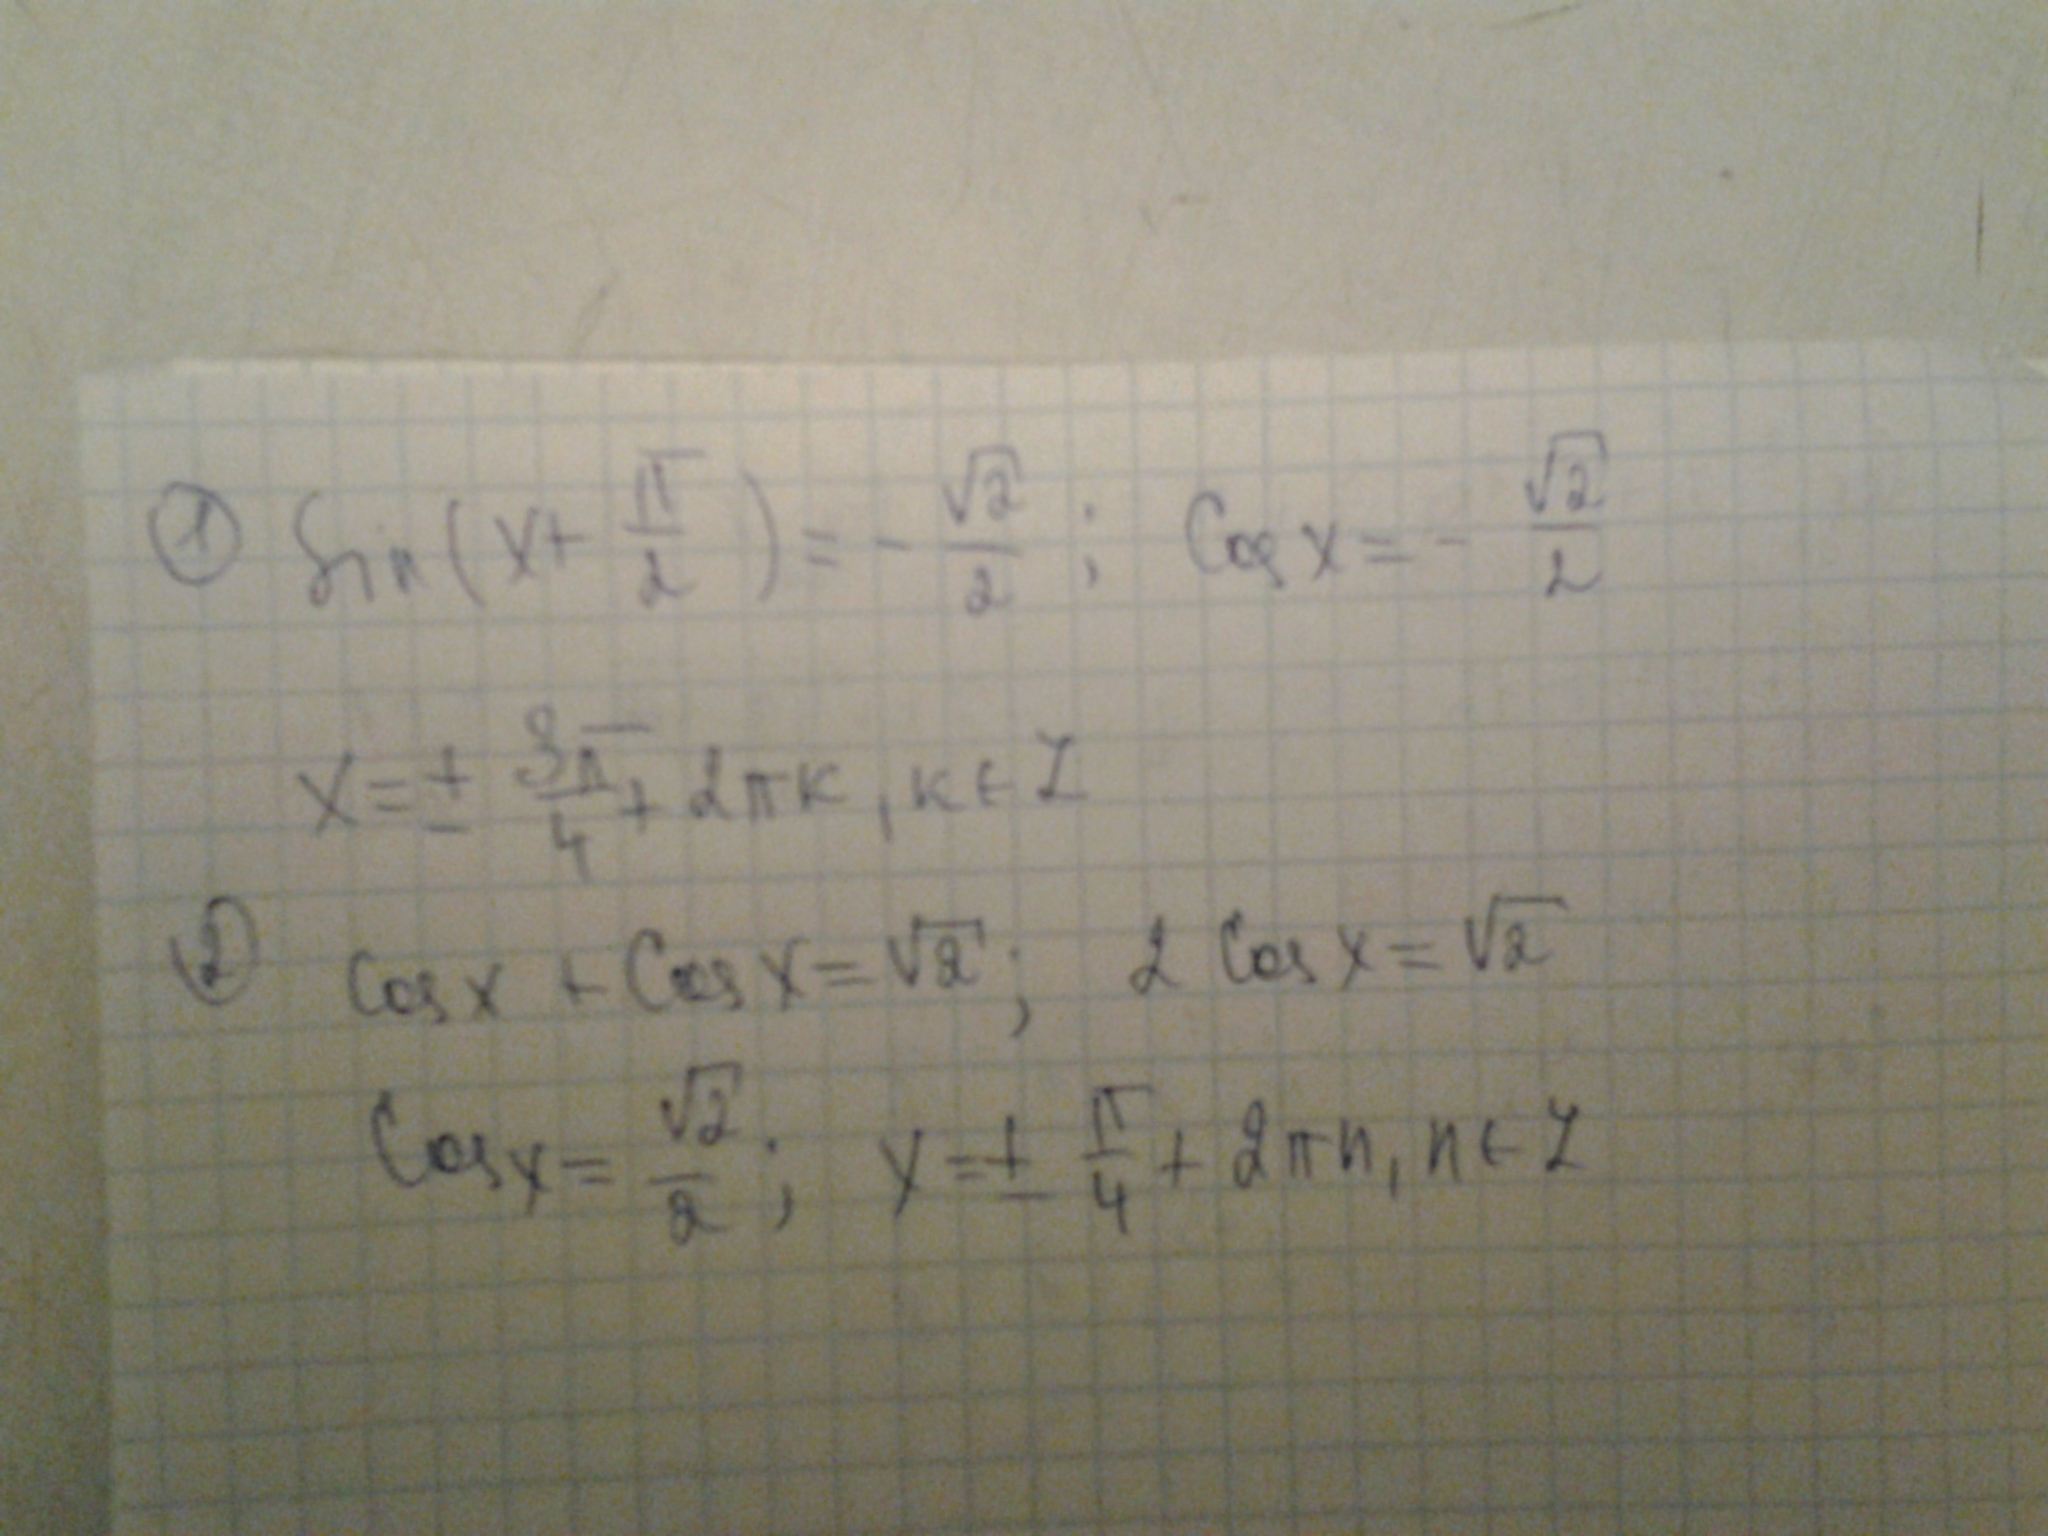 ① Sin(x+π/2)=-√2/2; Cos x=-√2/2
x=± 3π/4+2πk, k∈Z
② Cos x + Cos x=√2; 2 Cos x=√2
Cos x=√2/2; x=± π/4+2πn, n∈Z